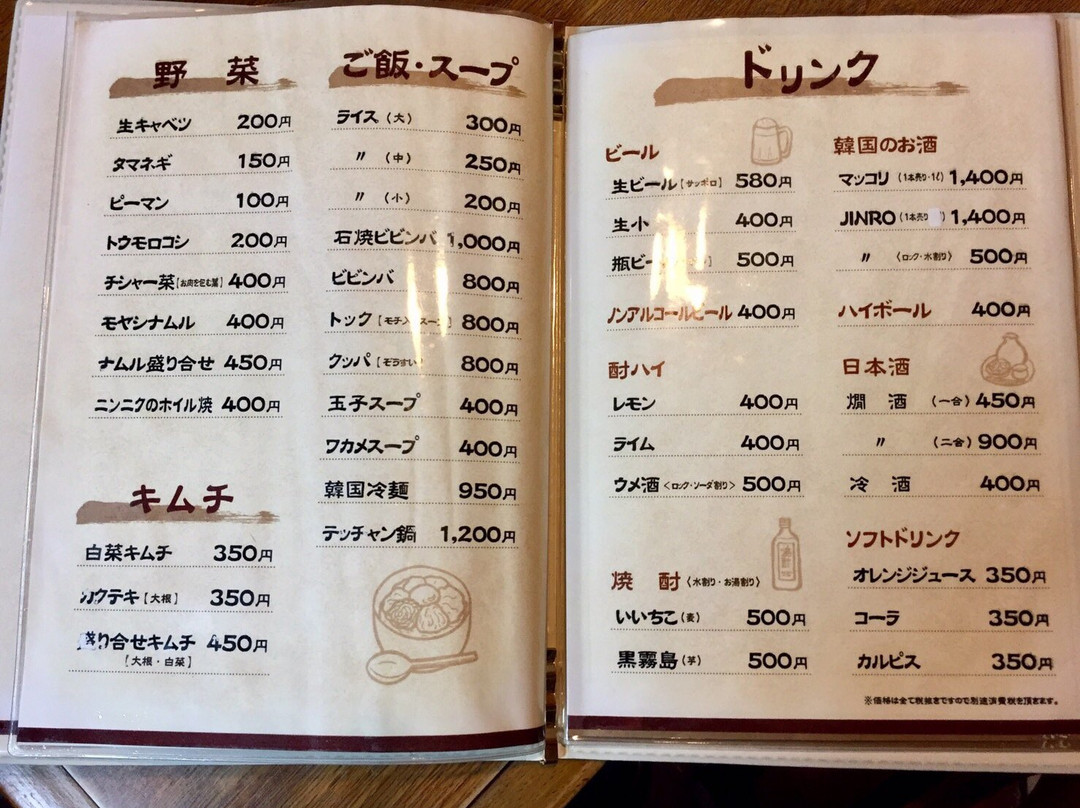 野 菜
生キャベツ 200円
タマネギ 150円
ピーマン 100円
トウモロコシ 200円
チシャー菜[お肉を包む葉] 400円
モヤシナムル 400円
ナムル盛り合せ 450円
ニンニクのホイル焼 400円
キムチ
白菜キムチ 350円
カクテキ[大根] 350円
盛り合せキムチ 450円
[大根・白菜]
ご飯・スープ
ライス(大) 300円
〃 (中) 250円
〃 (小) 200円
石焼ビビンバ 1,000円
ビビンバ 800円
トック 800円
クッパ[ぞうすい] 800円
玉子スープ 400円
ワカメスープ 400円
韓国冷麺 950円
テッチャン鍋 1,200円
ドリンク
ビール
生ビール[サッポロ] 580円
生小 400円
瓶ビール 500円
ノンアルコールビール 400円
酎ハイ
レモン 400円
ライム 400円
ウメ酒<ロック・ソーダ割り> 500円
焼 酎〈水割り・お湯割り〉
いいちこ(麦) 500円
黒霧島(芋) 500円
韓国のお酒
マッコリ(1本売り・1ℓ) 1,400円
JINRO(1本売り) 1,400円
〃 〈ロック・水割り〉 500円
ハイボール 400円
日本酒
燗 酒 (一合) 450円
〃 (二合) 900円
冷 酒 400円
ソフトドリンク
オレンジジュース 350円
コーラ 350円
カルピス 350円
※価格は全て税抜きですので別途消費税を頂きます。